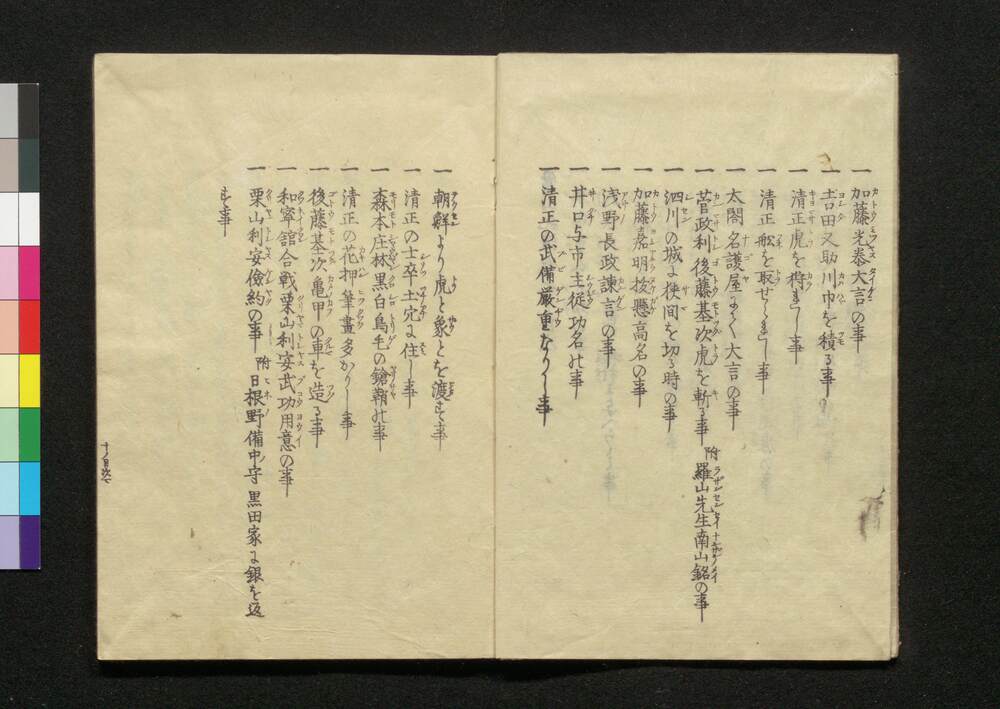 一 加藤光泰大言の事
一 吉田又助川巾を積る事
一 清正虎を狩まし事
一 清正舩を取せられし事
一 太閤名護屋にて大言の事
一 菅政利後藤基次虎を斬る事 附 羅山先生南山銘の事
一 泗川の城に狭間を切る時の事
一 加藤嘉明抜懸高名の事
一 浅野長政諫言の事
一 井口与市主従功名の事
一 清正の武備厳重なりし事
一 朝鮮より虎と象とを渡す事
一 清正の士卒土穴に住し事
一 森本庄林黒白鳥毛の鎗鞘の事
一 清正の花押筆畫多かりし事
一 後藤基次亀甲の車を造る事
一 和寧舘合戦栗山利安武功用意の事
一 栗山利安儉約の事 附 日根野備中守黒田家に銀を返
す事